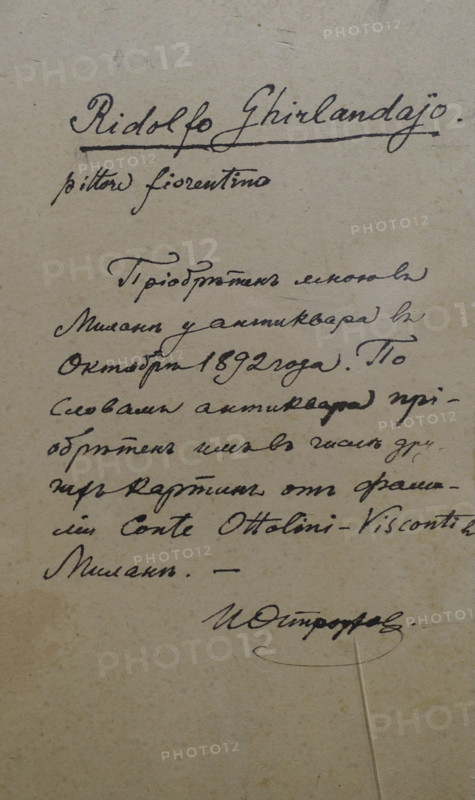 Ridolfo Ghirlandajo.
pittore fiorentino
Пріобрѣтенъ мною въ
Миланѣ у антиквара въ
Октябрѣ 1892 года. По
словамъ антиквара прі-
обрѣтенъ имъ въ числѣ дру-
гихъ картинъ отъ фами-
ліи Conte Ottolini-Visconti въ
Миланѣ. —
И Остроухов.
PHOTO12